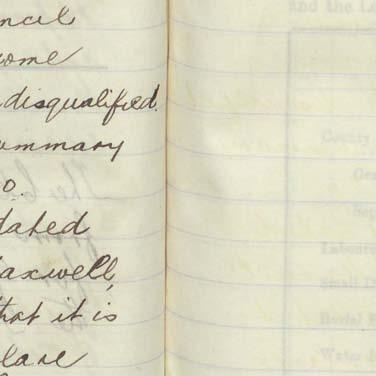 ncil
ome
disqualified.
ummary
o.
dated
axwell,
that it is
lare
and the L
County
Ge
Se
Labour
Small D
Burial
Water